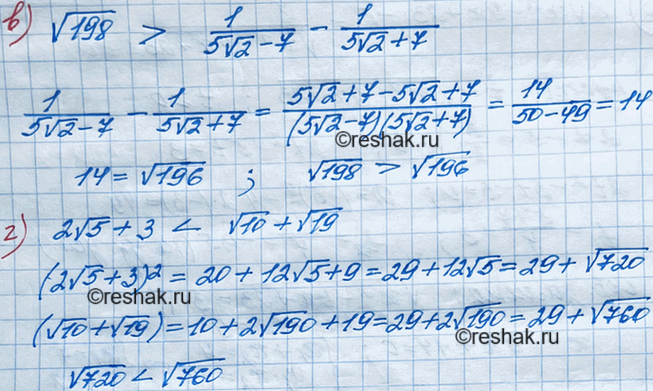 в) √198 > 1/(5√2-7) - 1/(5√2+7)
1/(5√2-7) - 1/(5√2+7) = (5√2+7-5√2+7)/((5√2-7)(5√2+7)) = 14/(50-49) = 14
reshak.ru
14 = √196 ; √198 > √196
г) 2√5 + 3 < √10 + √19
(2√5+3)² = 20 + 12√5+9 = 29+12√5 = 29 + √720
reshak.ru
(√10+√19) = 10 + 2√190 + 19 = 29 + 2√190 = 29 + √760
√720 < √760
reshak.ru